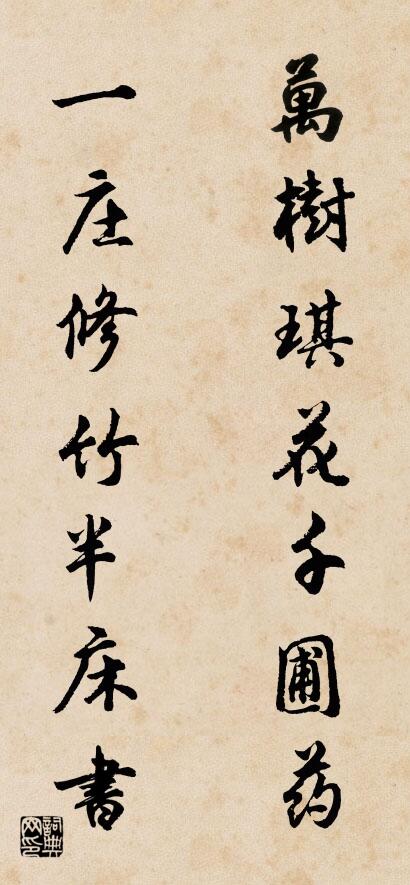 萬樹琪花千圃药
一庄修竹半床書
詞典网印